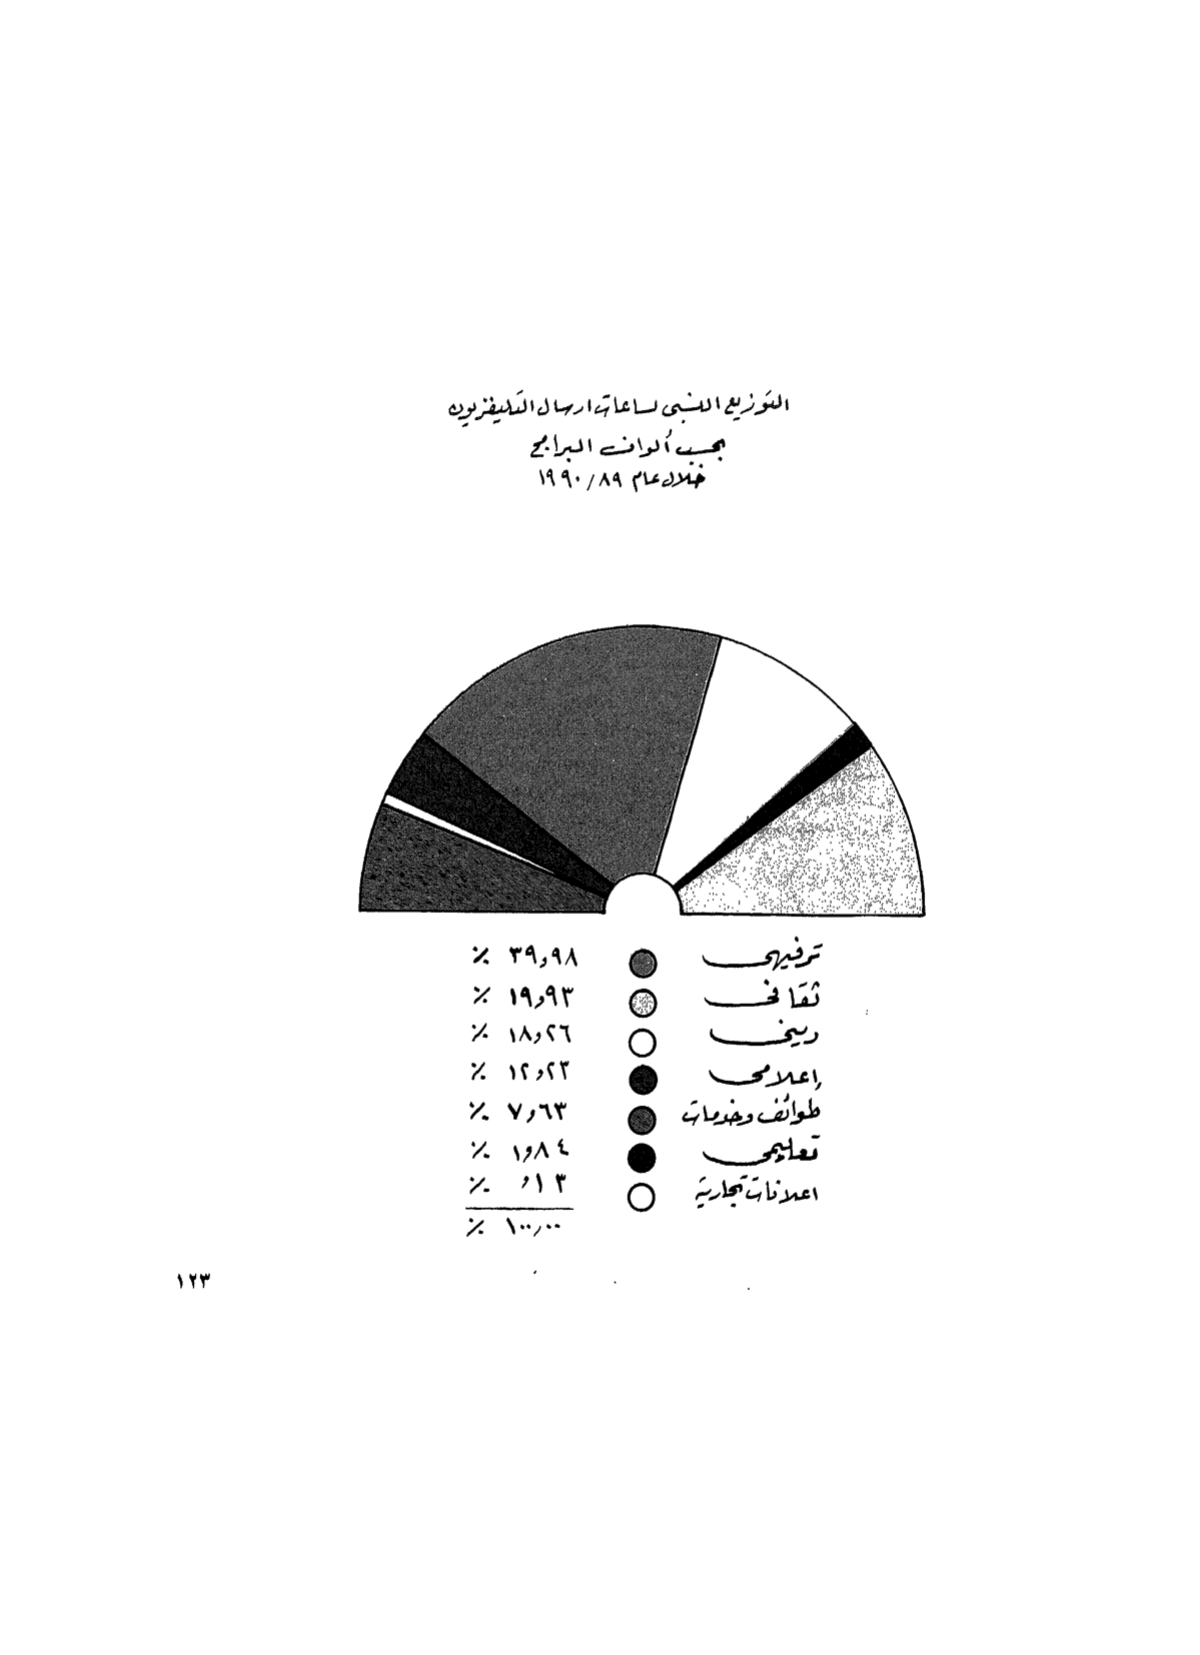 التوزيع النسبى لساعات ارسال التليفزيون
بحسب ألوان البرامج
خلال عام ١٩٩٠/٨٩
ترفيهى ٣٩,٩٨ ٪
ثقافى ١٩,٩٣ ٪
دينى ١٨,٢٦ ٪
إعلامى ١٢,٢٣ ٪
طوائف وخدمات ٧,٦٣ ٪
تعليمى ١,٨٤ ٪
اعلانات تجارية ,١٣ ٪
١٠٠,٠٠ ٪
١٢٣